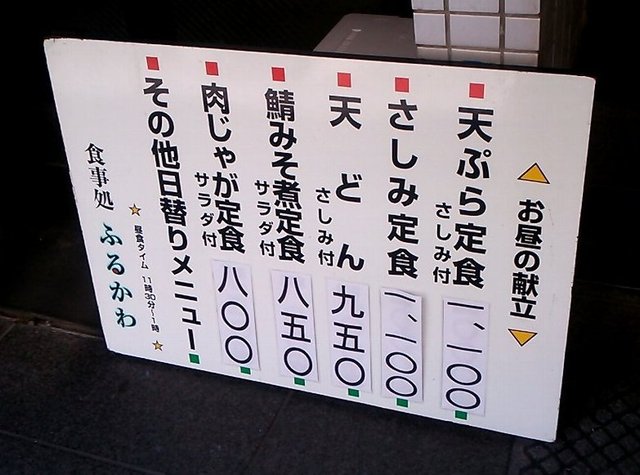 お昼の献立
天ぷら定食 さしみ付 一、一〇〇
さしみ定食 一、一〇〇
天どん さしみ付 九五〇
鯖みそ煮定食 サラダ付 八五〇
肉じゃが定食 サラダ付 八〇〇
その他日替りメニュー
昼食タイム 11時30分〜1時
食事処 ふるかわ